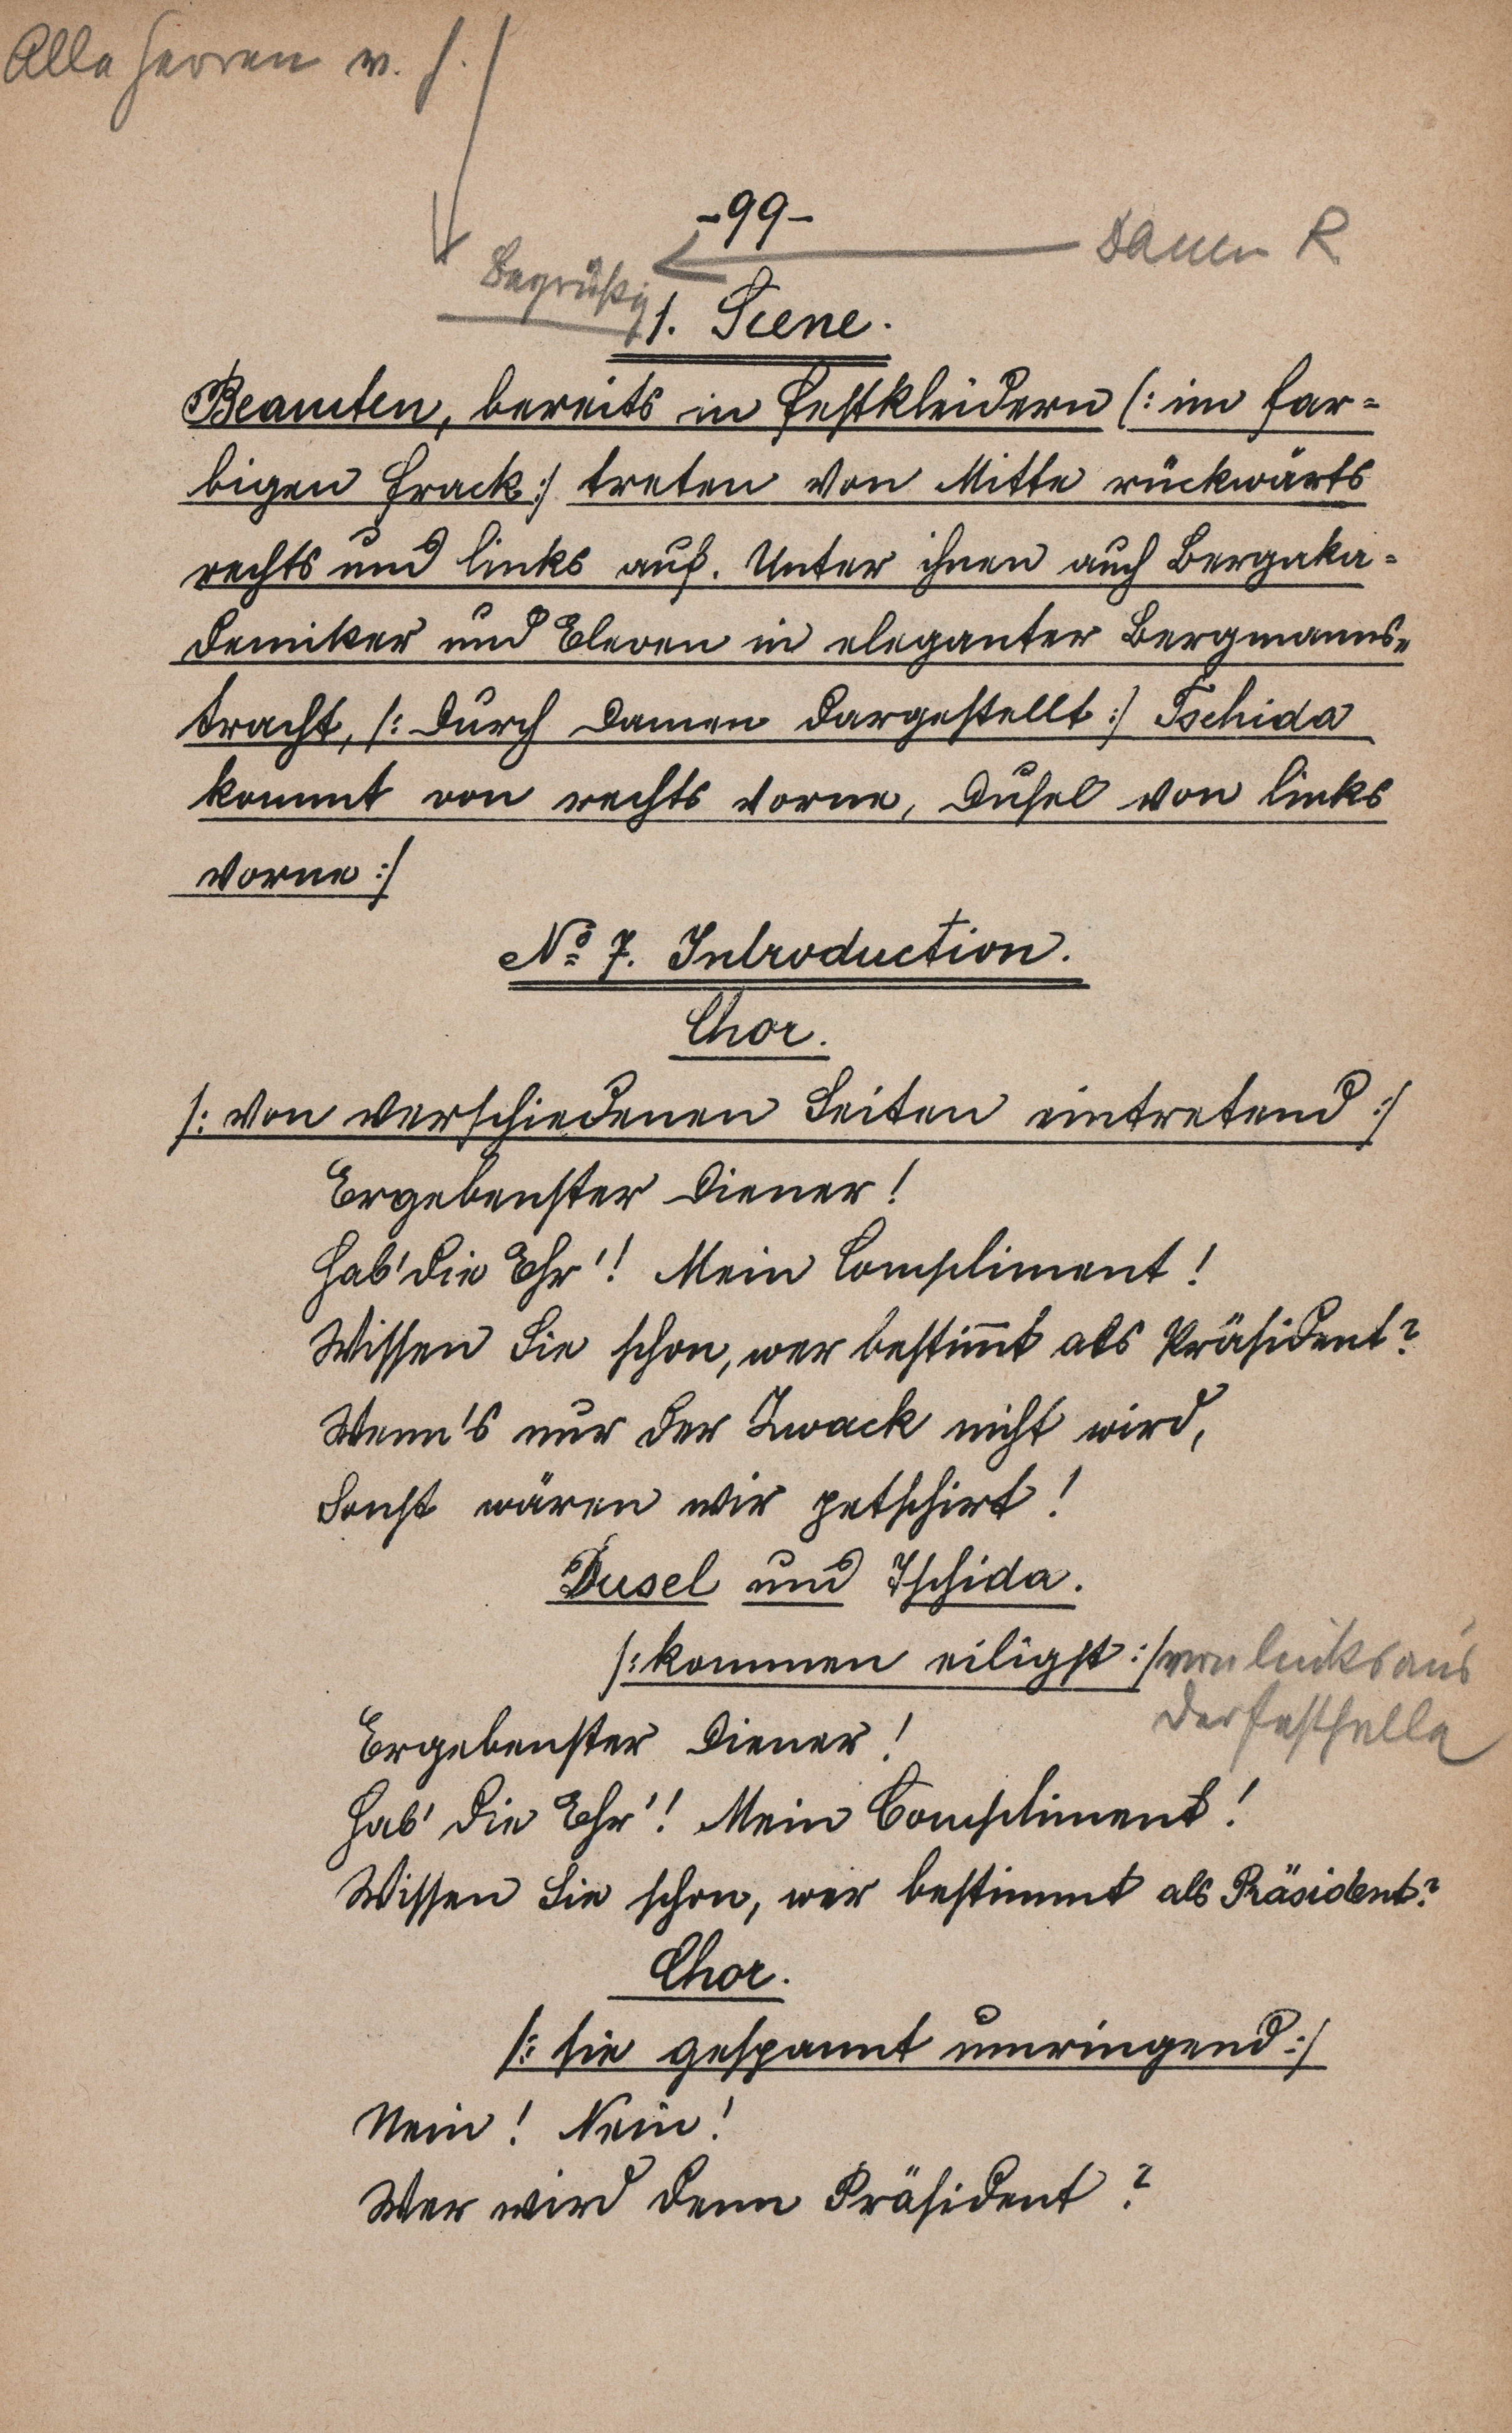 Alle Herren v. l.
-99-
Damen R
Begrüßg
1. Scene.
Beamten, bereits in Festkleidern (: im far=
bigen Frack :/ treten von Mitte rückwärts
rechts und links auf. Unter ihnen auch Bergaka=
demiker und Eleven in eleganter Bergmanns=
tracht, /: durch Damen dargestellt :/ Tschida
kommt von rechts vorne, Dusel von links
vorne :/
No 7. Introduction.
Chor.
/: von verschiedenen Seiten eintretend :/
Ergebenster Diener!
Hab' die Ehr'! Mein Compliment!
Wissen Sie schon, wer bestim̅t als Präsident?
Wenn's nur der Zwack nicht wird,
Sonst wären wir petschirt!
Dusel und Tschida.
/: kommen eiligst :/ von links aus
der Festhalle
Ergebenster Diener!
Hab' die Ehr'! Mein Compliment!
Wissen Sie schon, wer bestimmt als Präsident?
Chor.
/: sie gespannt umringend :/
Nein! Nein!
Wer wird denn Präsident?